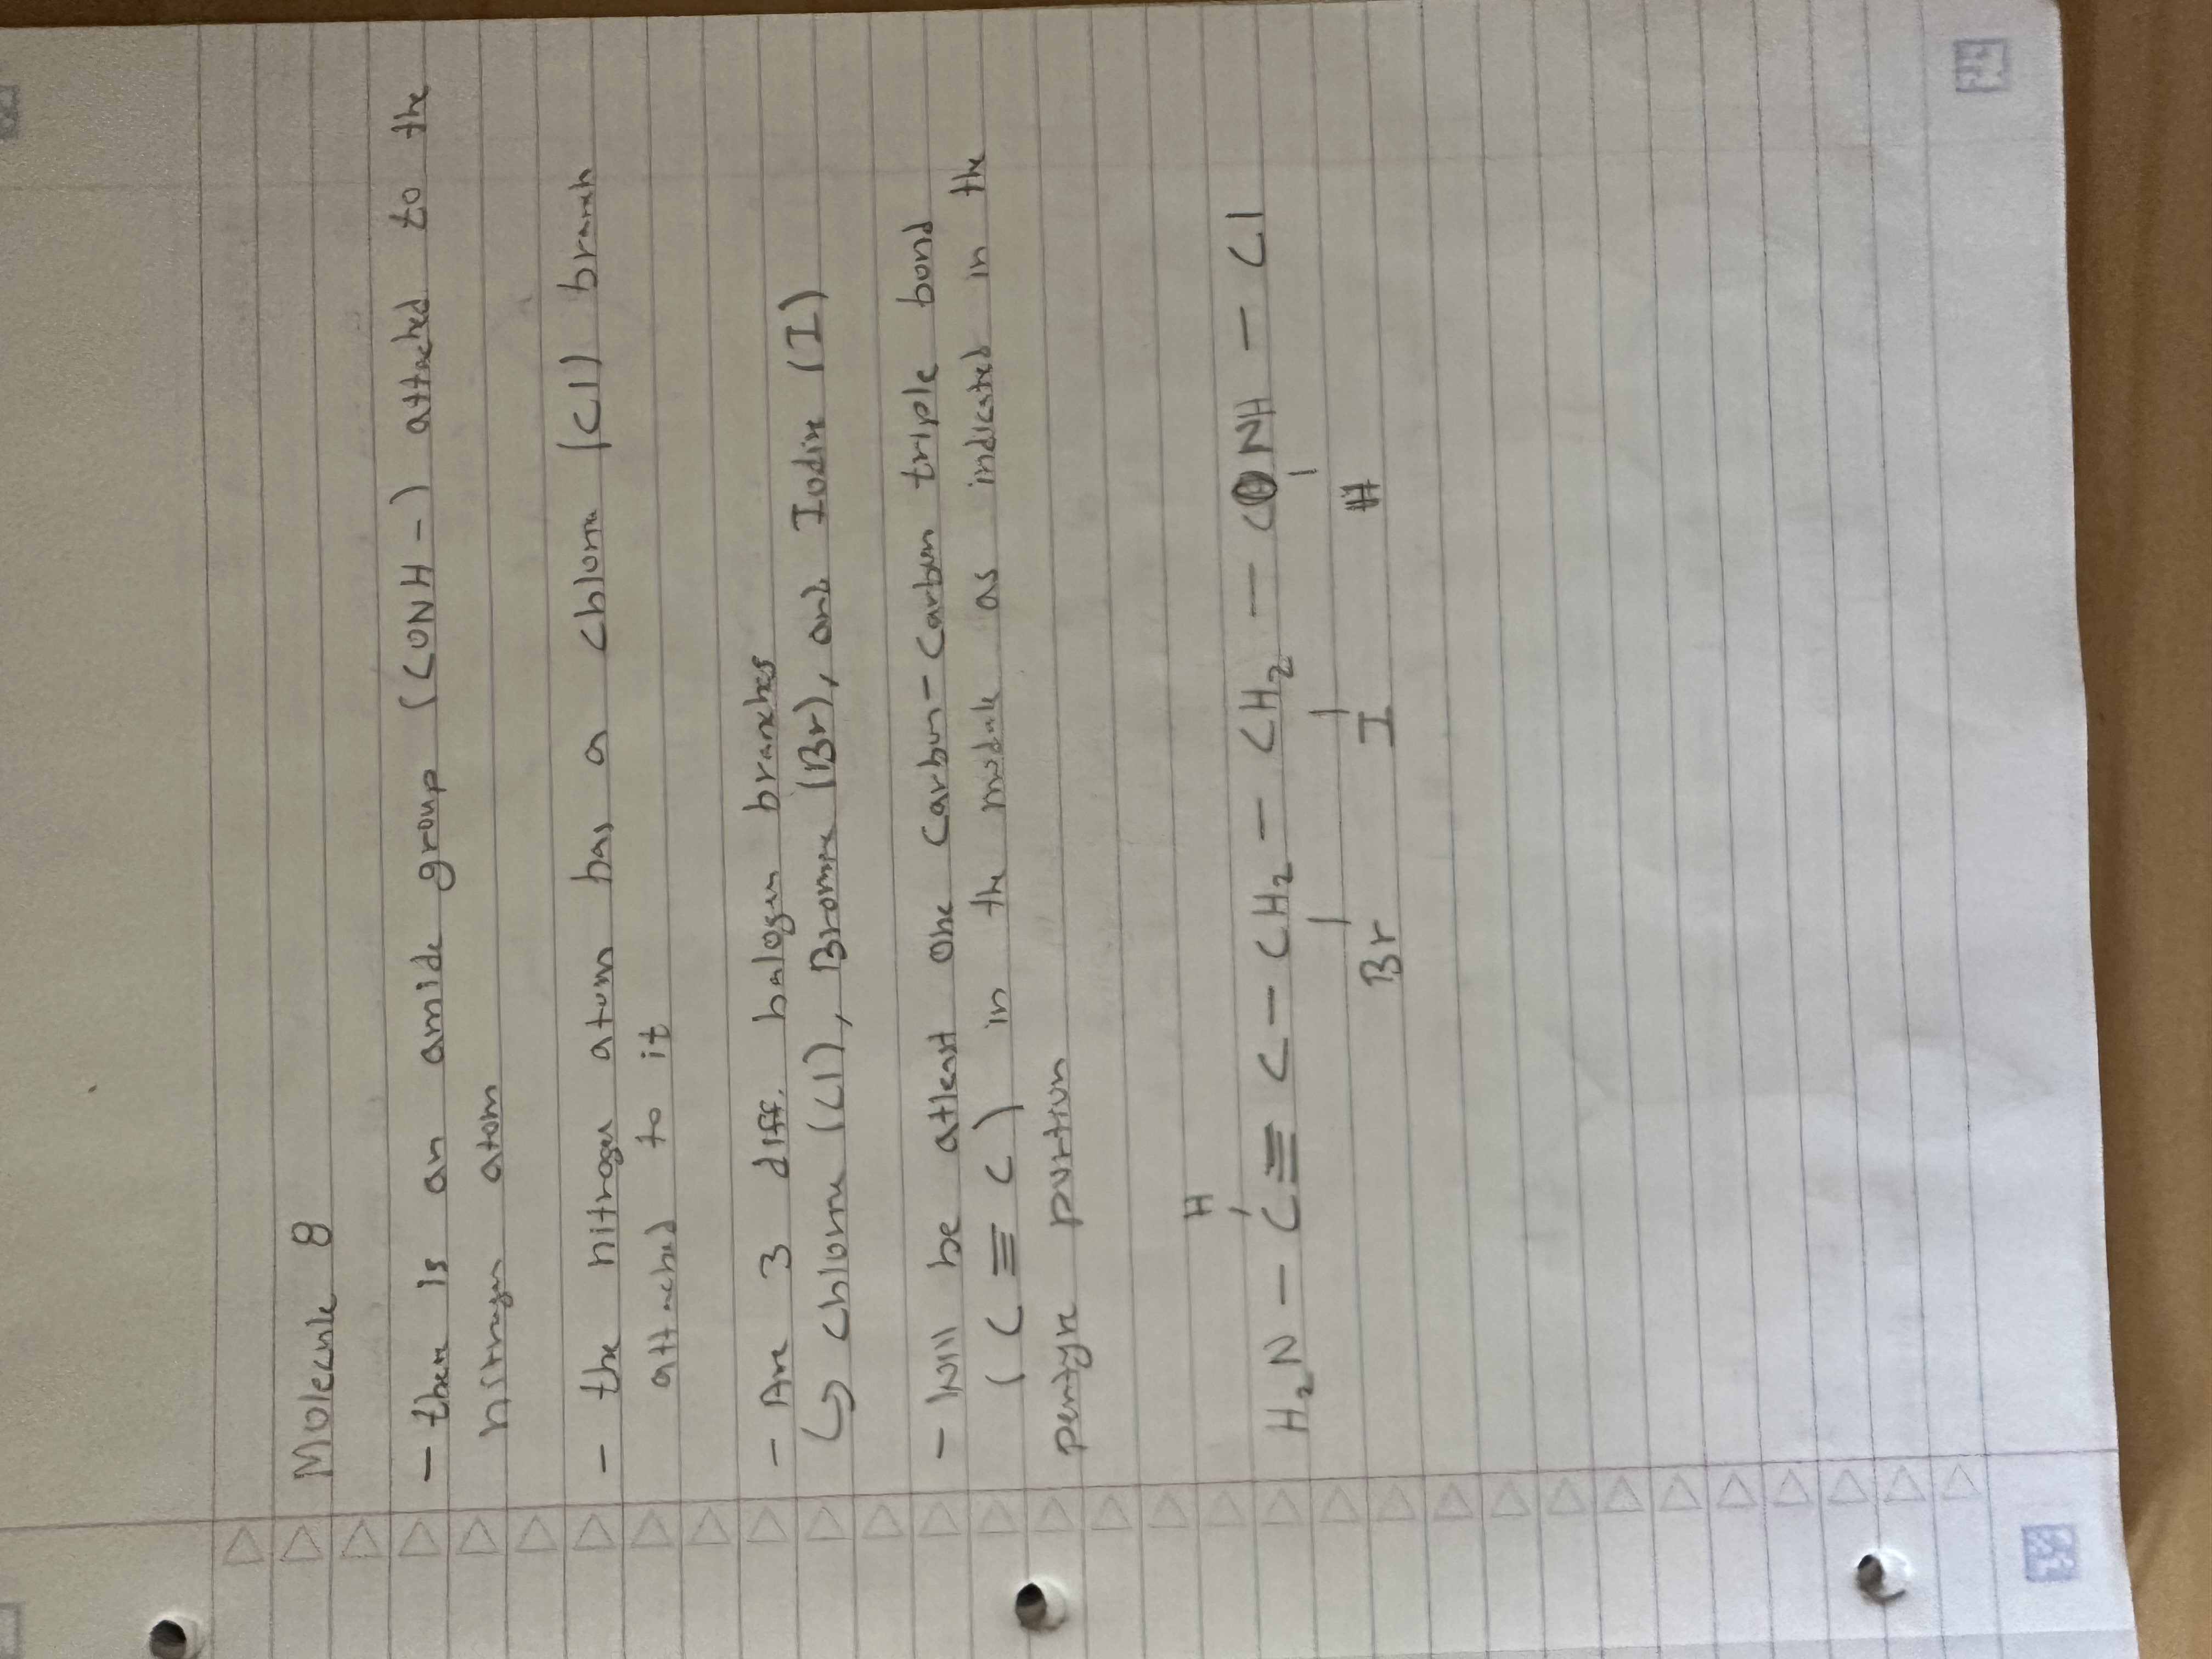 Molecule 8
- there is an amide group (CONH-) attached to the
nitrogen atom
- the nitrogen atom has a chlorine (Cl) branch
attached to it
- Are 3 diff. halogen branches
↳ chlorine (Cl), Bromine (Br), and Iodine (I)
- Will be atleast one Carbon-Carbon triple bond
(C ≡ C) in the module as indicated in the
pentyne portion
H
H₂N - C ≡ C - CH₂ - CH₂ - CONH - Cl
Br I H